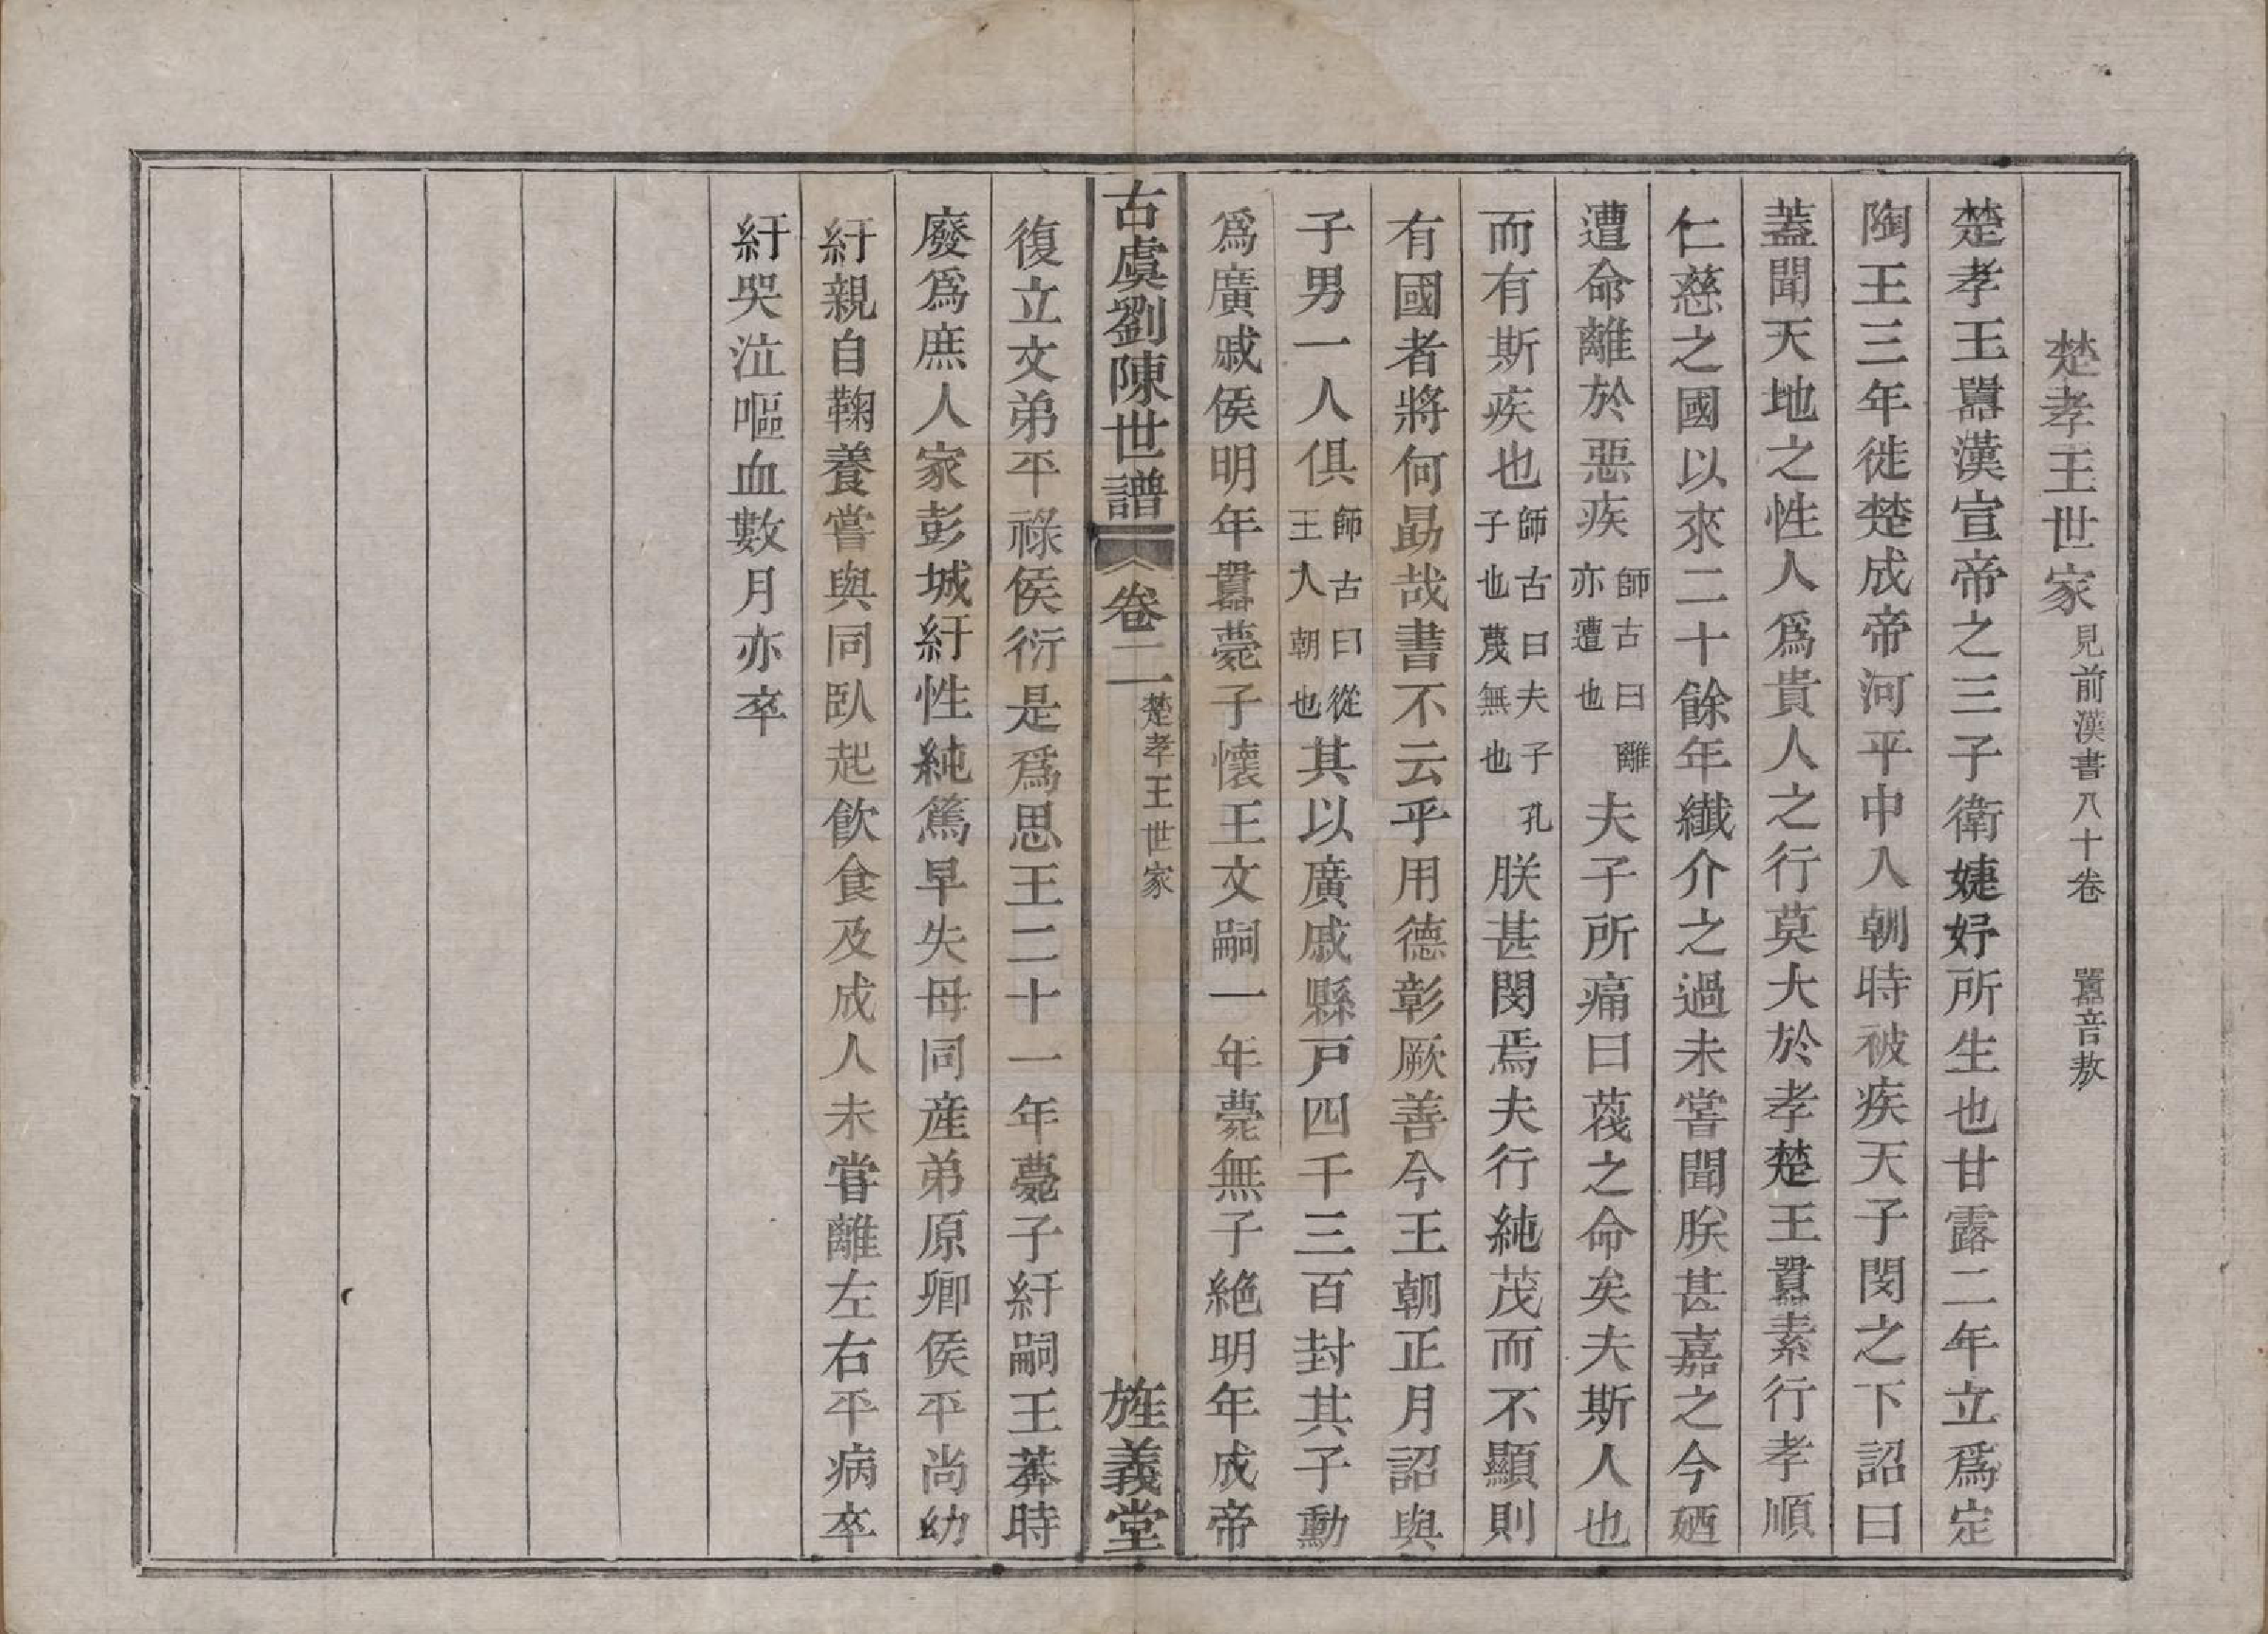 楚孝王世家見前漢書八十卷 囂音敖
楚孝王囂漢宣帝之三子衛婕妤所生也甘露二年立爲定
陶王三年徙楚成帝河平中入朝時被疾天子閔之下詔曰
蓋聞天地之性人爲貴人之行莫大於孝楚王囂素行孝順
仁慈之國以來二十餘年纖介之過未嘗聞朕甚嘉之今廼
遭命離於惡疾師古曰離亦遭也夫子所痛曰蔑之命矣夫斯人也
而有斯疾也師古曰夫子孔子也蔑無也朕甚閔焉夫行純茂而不顯則
有國者將何勗哉書不云乎用德彰厥善今王朝正月詔與
子男一人俱師古曰從王人朝也其以廣戚縣戸四千三百封其子勳
爲廣戚侯明年囂薨子懷王文嗣一年薨無子絶明年成帝
古虞劉陳世譜 卷二 楚孝王世家 旌義堂
復立文弟平祿侯衍是爲思王二十一年薨子紆嗣王莽時
廢爲庶人家彭城紆性純篤早失母同産弟原卿侯平尚幼
紆親自鞠養嘗與同臥起飲食及成人未嘗離左右平病卒
紆哭泣嘔血數月亦卒